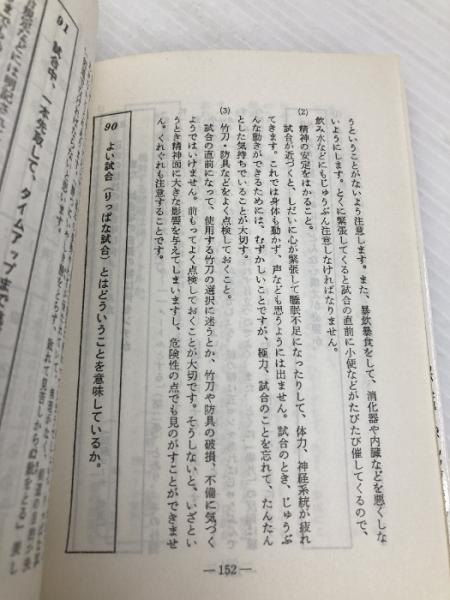 うということがないよう注意します。また、暴飲暴食をして、消化器や内臓などを悪くしな
いようにします。とくに緊張してくると試合の直前に小便などがたびたび催してくるので、
飲み水などにもじゅうぶん注意しなければなりません。
(2) 精神の安定をはかること。
試合が近づくと、しだいに心が緊張して睡眠不足になったりして、体力、神経系統が疲れ
てきます。これでは身体も動かず、声なども思うようには出ません。試合のとき、じゅうぶ
んな動きができるためには、むずかしいことですが、極力、試合のことを忘れて、たんたん
とした気持ちでいることが大切です。
(3) 竹刀・防具などをよく点検しておくこと。
試合の直前になって、使用する竹刀の選択に迷うとか、竹刀や防具の破損、不備に気づく
ようではいけません。前もってよく点検しておくことが大切です。そうしないと、いざとい
うとき精神面に大きな影響を与えてしまいますし、危険性の点でも見のがすことができませ
ん。くれぐれも注意することです。
90 よい試合（りっぱな試合）とはどういうことを意味しているか。
—152—
91 試合中、一本先取して、タイムアップまで